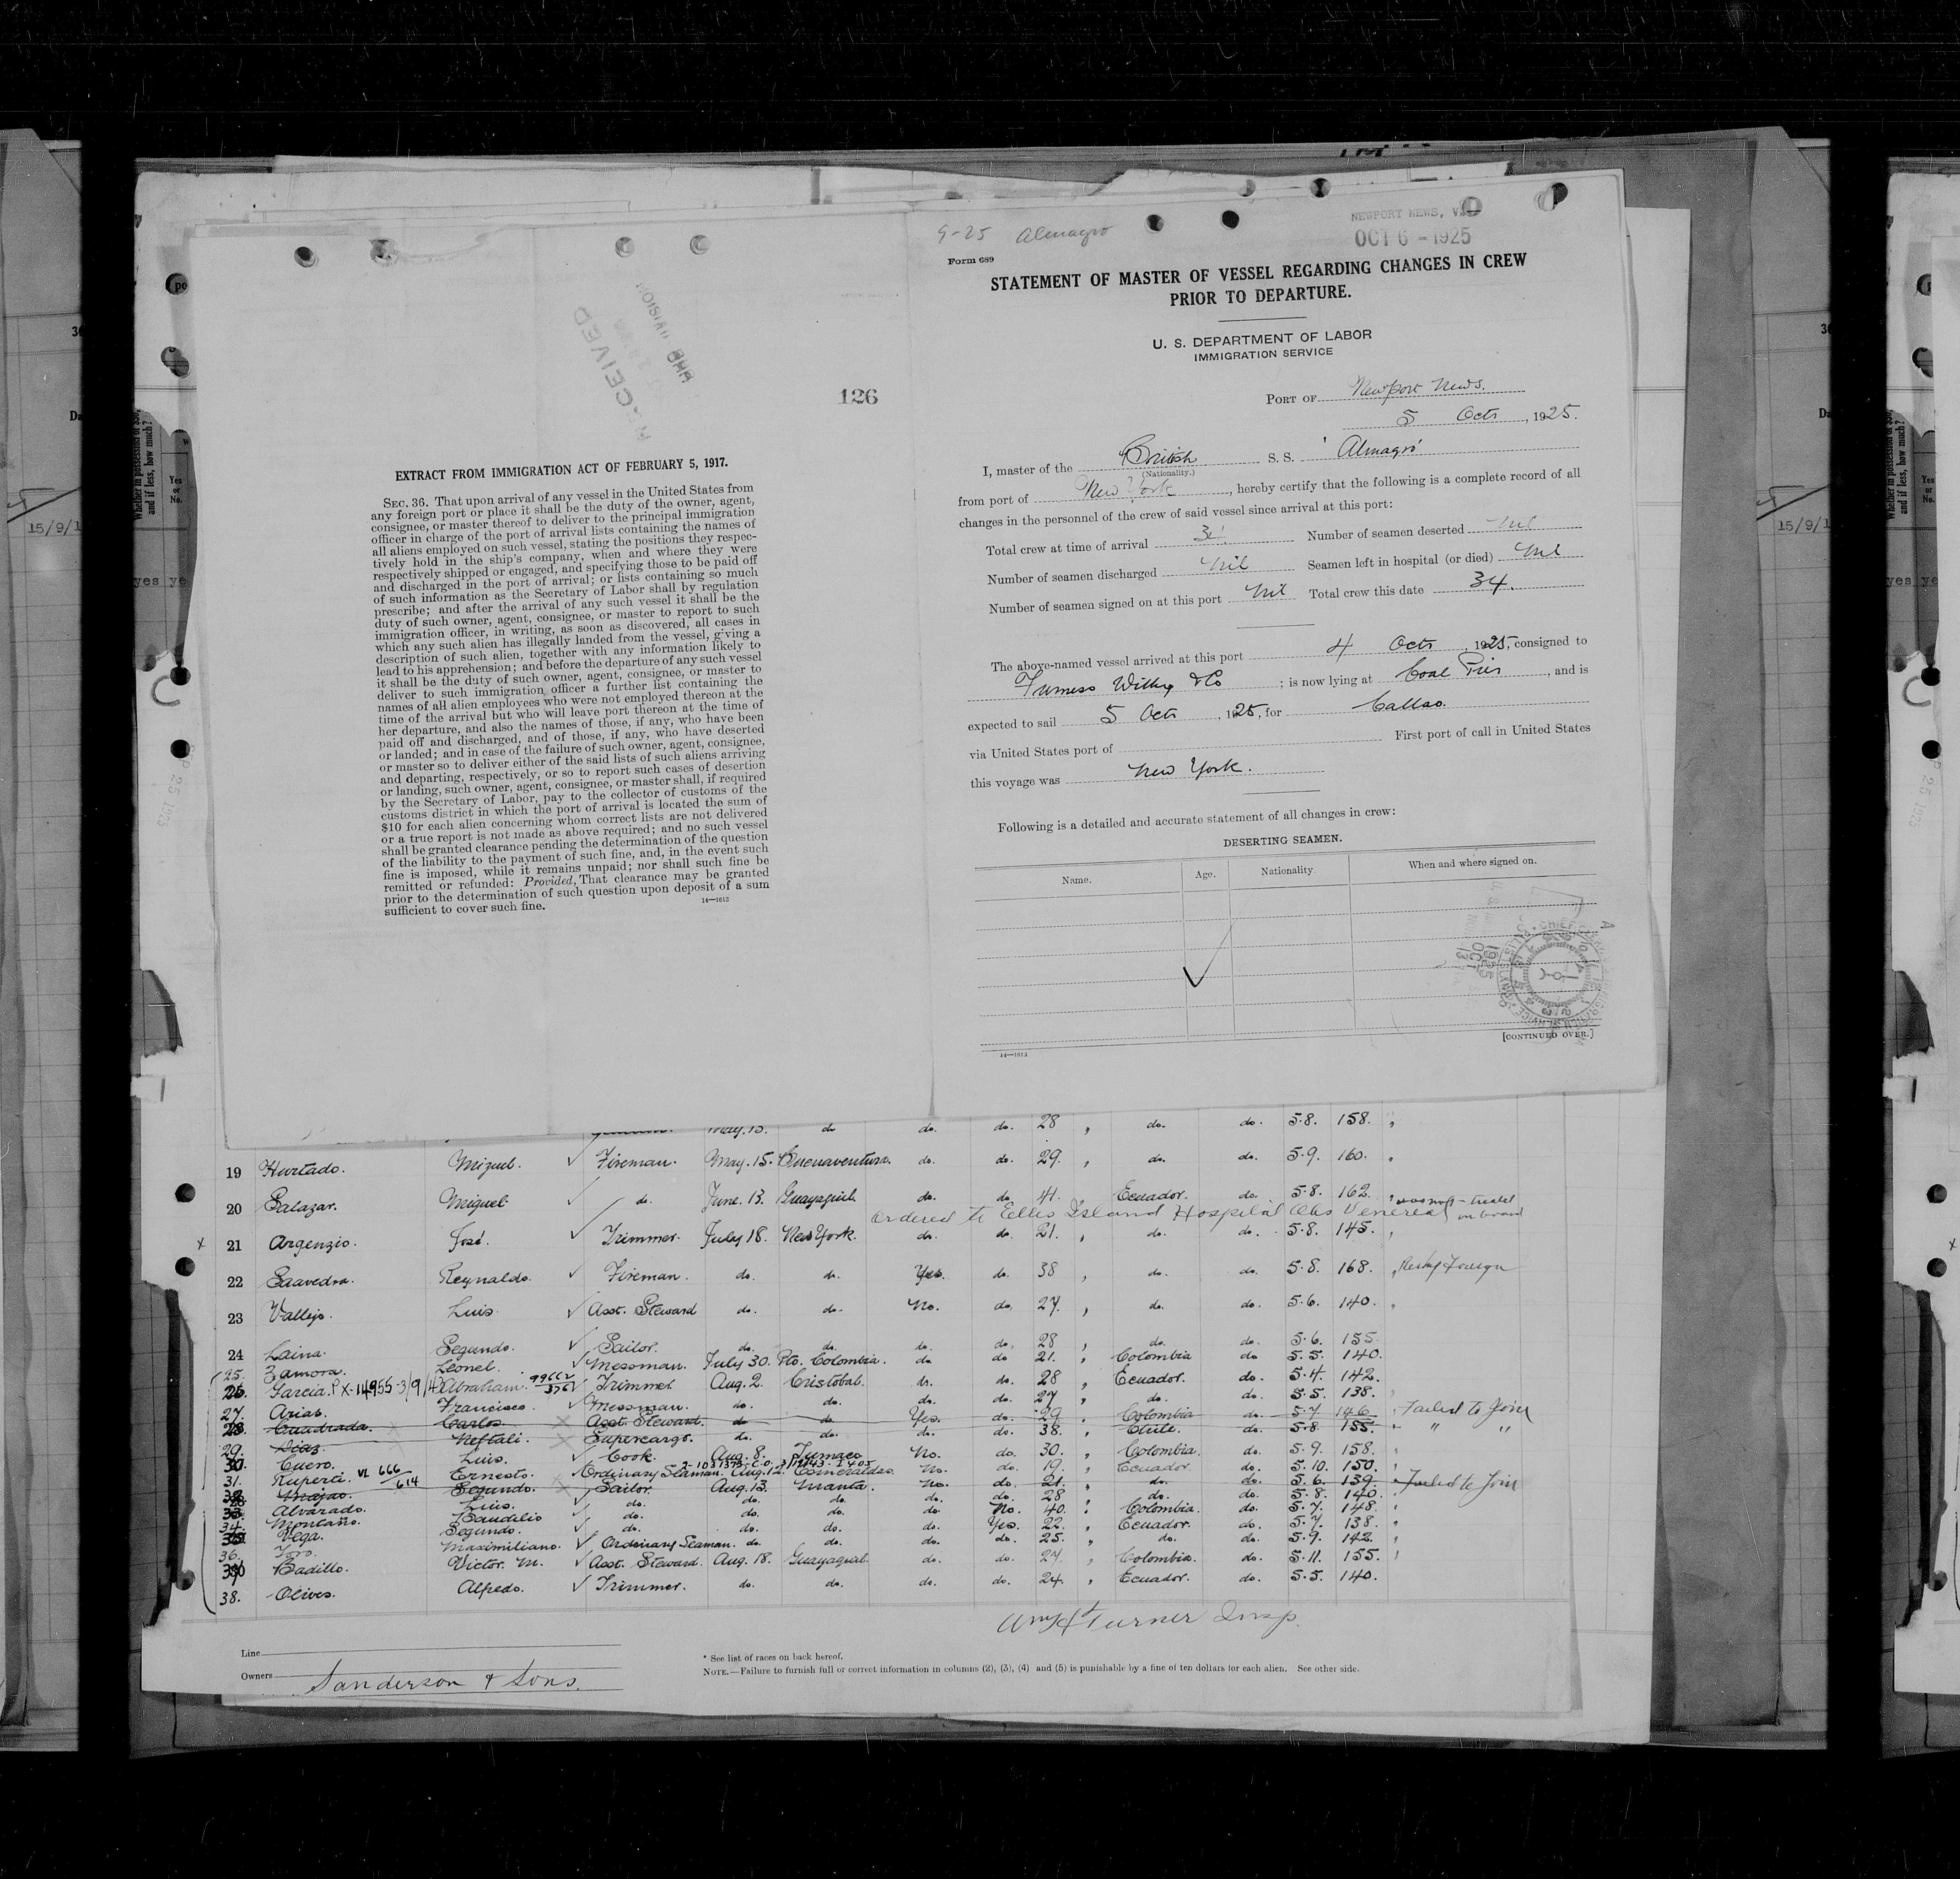 126
EXTRACT FROM IMMIGRATION ACT OF FEBRUARY 5, 1917.
SEC. 36. That upon arrival of any vessel in the United States from
any foreign port or place it shall be the duty of the owner, agent,
consignee, or master thereof to deliver to the principal immigration
officer in charge of the port of arrival lists containing the names of
all aliens employed on such vessel, stating the positions they respec-
tively hold in the ship's company, when and where they were
respectively shipped or engaged, and specifying those to be paid off
and discharged in the port of arrival; or lists containing so much
of such information as the Secretary of Labor shall by regulation
prescribe; and after the arrival of any such vessel it shall be the
duty of such owner, agent, consignee, or master to report to such
immigration officer, in writing, as soon as discovered, all cases in
which any such alien has illegally landed from the vessel, giving a
description of such alien, together with any information likely to
lead to his apprehension; and before the departure of any such vessel
it shall be the duty of such owner, agent, consignee, or master to
deliver to such immigration officer a further list containing the
names of all alien employees who were not employed thereon at the
time of the arrival but who will leave port thereon at the time of
her departure, and also the names of those, if any, who have been
paid off and discharged, and of those, if any, who have deserted
or landed; and in case of the failure of such owner, agent, consignee,
or master so to deliver either of the said lists of such aliens arriving
and departing, respectively, or so to report such cases of desertion
or landing, such owner, agent, consignee, or master shall, if required
by the Secretary of Labor, pay to the collector of customs of the
customs district in which the port of arrival is located the sum of
$10 for each alien concerning whom correct lists are not delivered
or a true report is not made as above required; and no such vessel
shall be granted clearance pending the determination of the question
of the liability to the payment of such fine, and, in the event such
fine is imposed, while it remains unpaid; nor shall such fine be
remitted or refunded: Provided, That clearance may be granted
prior to the determination of such question upon deposit of a sum
sufficient to cover such fine.
14—1613
9-25 Almagro
NEWPORT NEWS, VA
OCT 6 - 1925
Form 689
STATEMENT OF MASTER OF VESSEL REGARDING CHANGES IN CREW
PRIOR TO DEPARTURE.
U. S. DEPARTMENT OF LABOR
IMMIGRATION SERVICE
PORT OF Newport News.
5 Octr, 1925.
I, master of the British S. S. 'Almagro'
(Nationality.)
from port of New York, hereby certify that the following is a complete record of all
changes in the personnel of the crew of said vessel since arrival at this port:
Total crew at time of arrival 34. Number of seamen deserted Nil
Number of seamen discharged Nil Seamen left in hospital (or died) Nil
Number of seamen signed on at this port Nil Total crew this date 34.
The above-named vessel arrived at this port 4 Octr, 1925, consigned to
Furness Withy & Co; is now lying at Coal Pier, and is
expected to sail 5 Octr, 1925, for Callao.
via United States port of First port of call in United States
this voyage was New York.
Following is a detailed and accurate statement of all changes in crew:
DESERTING SEAMEN.
Name. Age. Nationality. When and where signed on.
[CONTINUED OVER.]
14—1613
May. 15. do do. do. 28 " do. do. 5-8. 158. "
19 Hurtado. Miguel. Fireman. May. 15. Buenaventura. do. do. 29. " do. do. 5-9. 160. "
20 Salazar. Miguel. do. June. 13. Guayaquil. do. do. 41. " Ecuador. do. 5-8. 162. "
Ordered to Ellis Island Hospital Obs Venereal treated on board
21 Argenzio. José. Trimmer. July 18. New York. do. do. 21. " do. do. 5-8. 145. "
22 Saavedra. Reynaldo. Fireman. do. do. Yes. do. 38 " do. do. 5-8. 168. "
23 Vallejo. Luis. Asst. Steward do. do. No. do. 27. " do. do. 5-6. 140. "
24 Laina. Segundo. Sailor. do. do. do. do. 28 " do. do. 5-6. 155.
25. Zamora. Leonel. Messman. July 30. Pto. Colombia. do do 21. " Colombia do 5-5. 140.
26. Garcia. PX-14955-3/9/43 Abraham. Trimmer Aug. 2. Cristobal. do. do. 28 " Ecuador. do. 5-4. 142.
27. Arias. Francisco. Messman. do. do. do. do. 27 " do. do. 5-5. 138.
28. Cuadrada. Carlos. Asst. Steward. do do. Yes. do. 29. " Colombia do. 5-7 146. Failed to Join
29. Diaz. Neftali. Supercargo. do. do. do. do. 38. " Chile. do. 5-8. 155. " "
30. Cuero. Luis. Cook. Aug. 8. Tumaco No. do. 30. " Colombia. do. 5-9. 158. "
31. Ruperti. VL 666/614 Ernesto. Ordinary Seaman. Aug. 12. Esmeraldas. No. do. 19. " Ecuador. do. 5-10. 150. "
Segundo. Sailor. Aug. 13. Manta. No. do. 21. " do. do. 5-6. 139. Failed to Join
33. Alvarado. Luis. do. do. do. do. do. 28 " do. do. 5-8. 140. "
34. Montaño. Baudilio do. do. do. do. No. 40. " Colombia. do. 5-7. 148. "
Vega. Segundo. do. do. do. do. Yes. 22. " Ecuador. do. 5-7. 138. "
36. Toro. Maximiliano. Ordinary Seaman. do. do. do. do. 25. " do. do. 5-9. 142. "
Badillo. Victor. M. Asst. Steward. Aug. 18. Guayaquil. do. do. 27. " Colombia. do. 5-11. 155. "
38. Olives. Alfredo. Trimmer. do. do. do. do. 24. " Ecuador. do. 5-5. 140.
Turner Insp.
Line
Owners Sanderson & Sons.
* See list of races on back hereof.
NOTE.—Failure to furnish full or correct information in columns (2), (3), (4) and (5) is punishable by a fine of ten dollars for each alien. See other side.